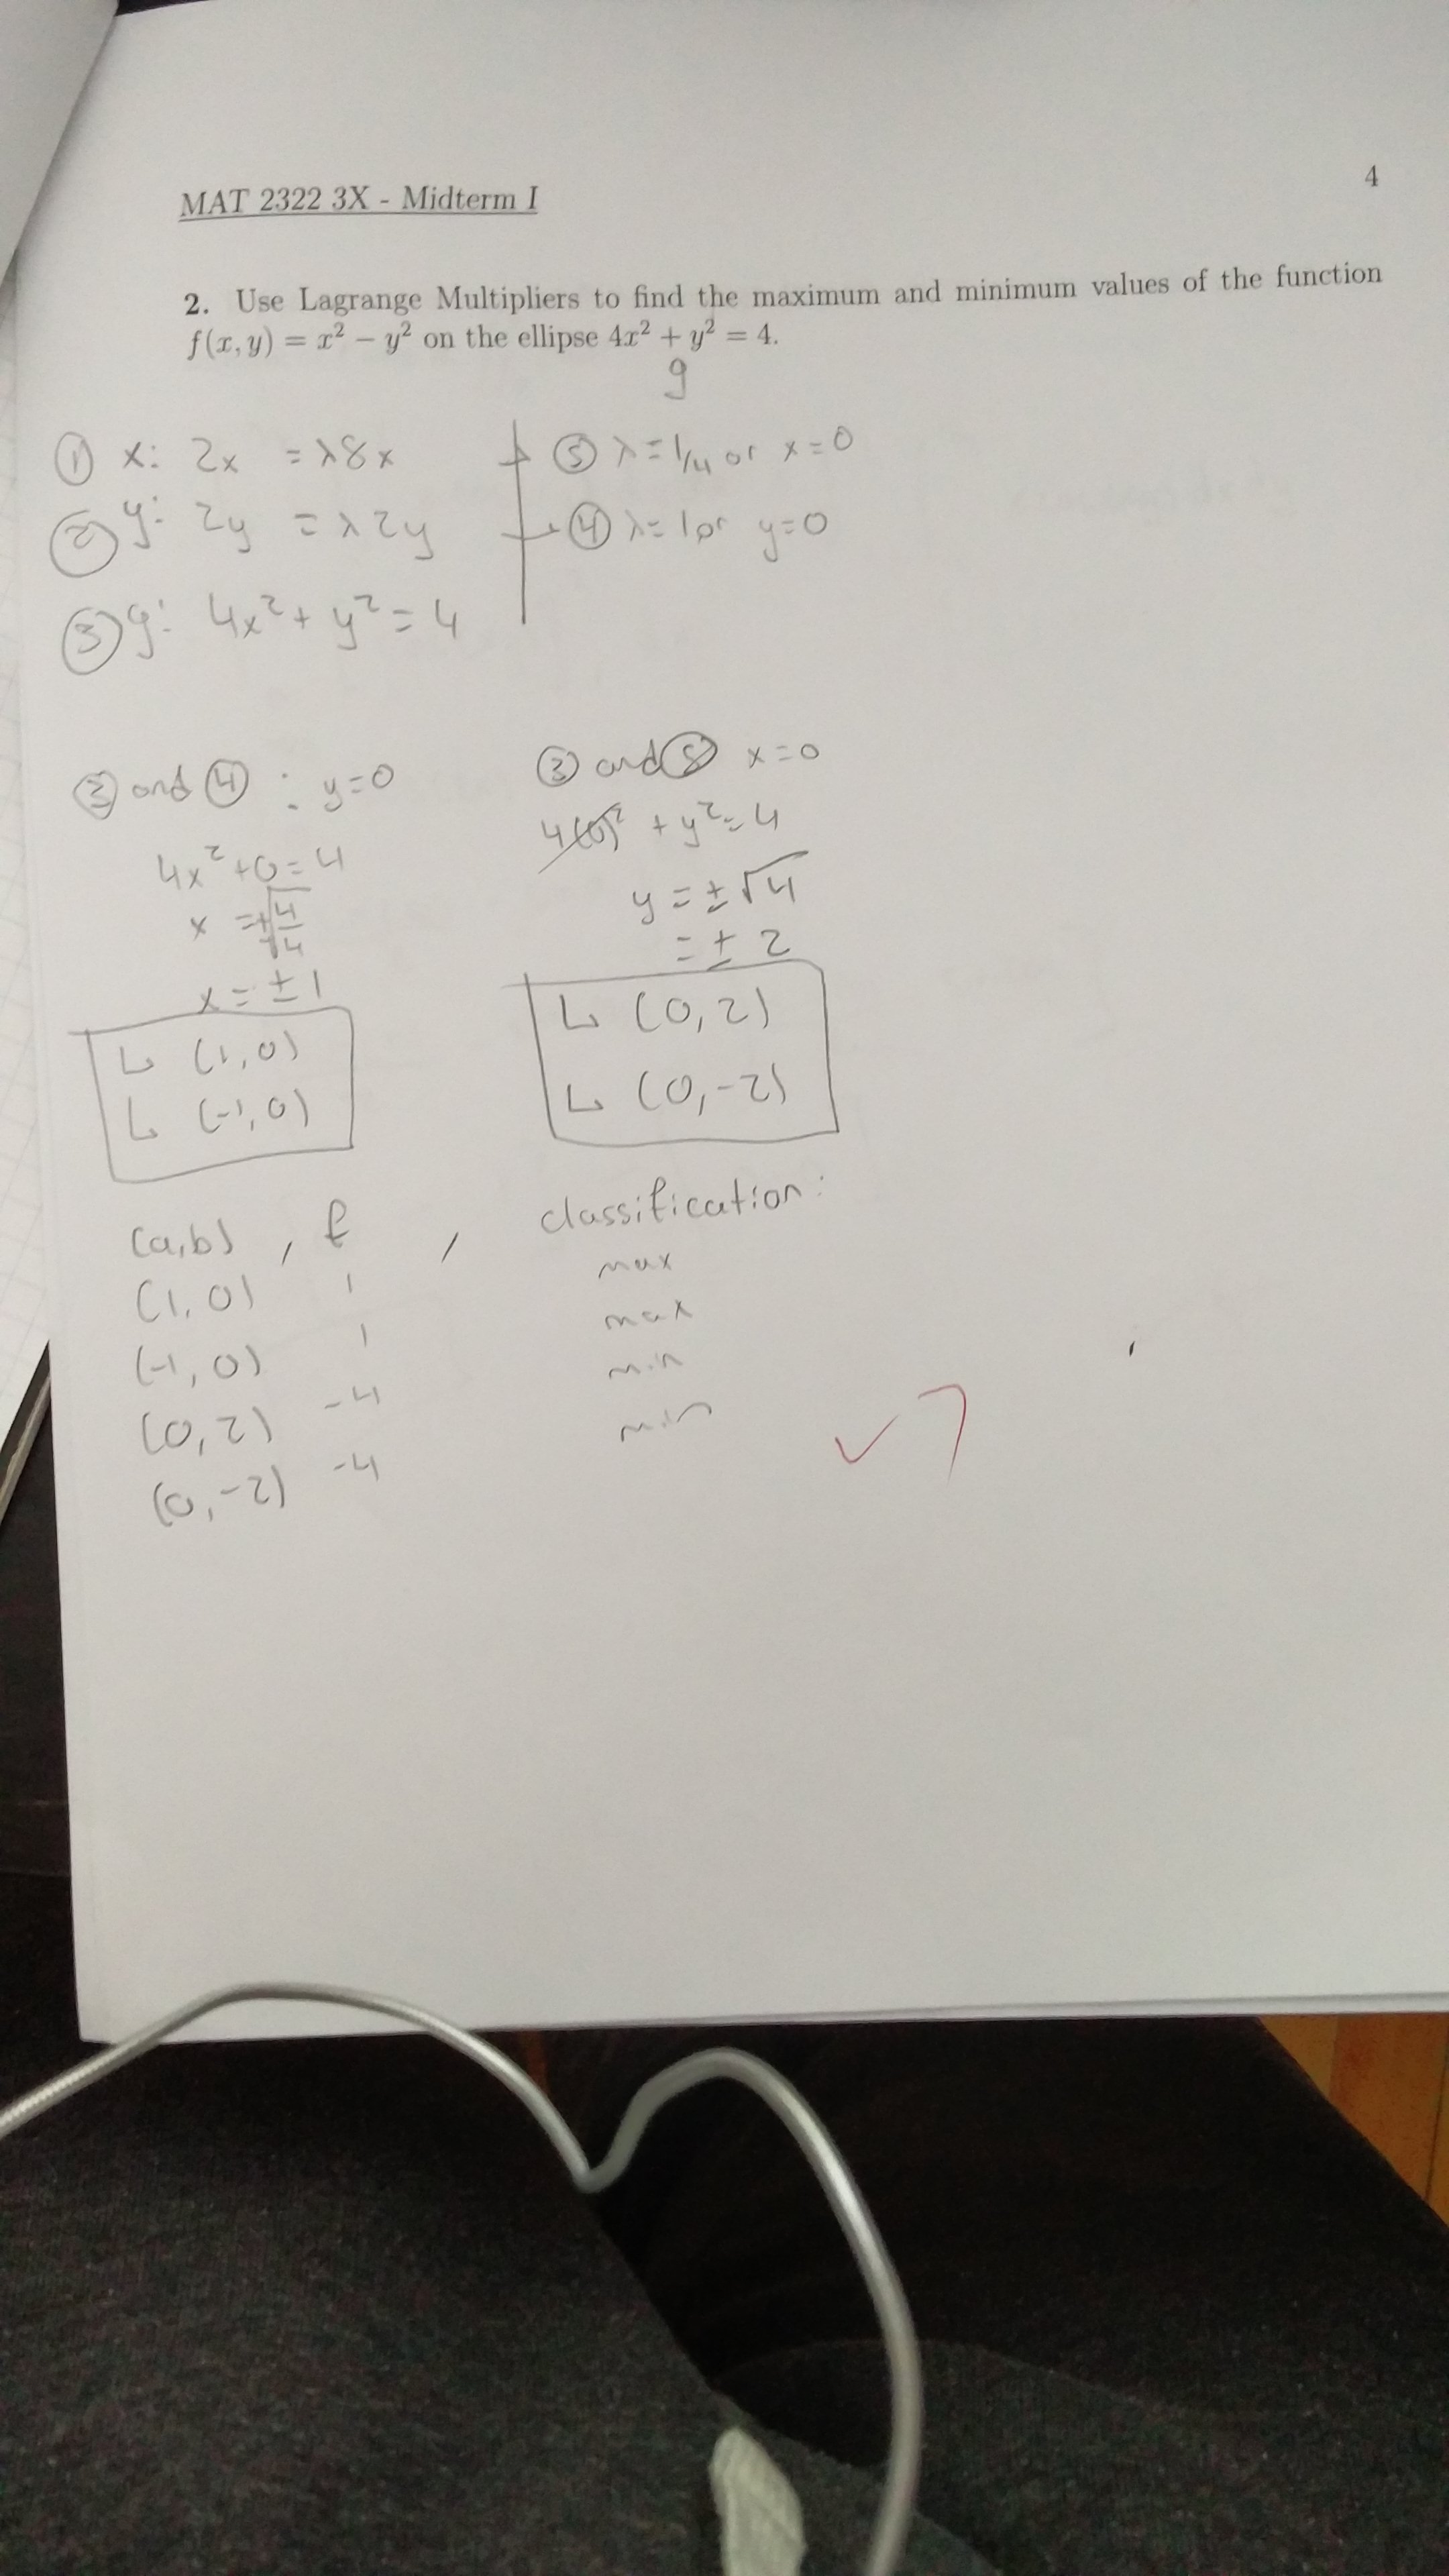 MAT 2322 3X - Midterm I
4
2. Use Lagrange Multipliers to find the maximum and minimum values of the function
f(x, y) = x² − y² on the ellipse 4x² + y² = 4.
g
① x: 2x = λ8x
⑤ λ = 1/4 or x=0
② y: 2y = λ2y
④ λ=1 or y=0
③ g: 4x² + y² = 4
③ and ④ : y=0
4x² + 0 = 4
x = ±√(4/4)
x = ± 1
↳ (1, 0)
↳ (-1, 0)
③ and ⑤ x=0
4(0)² + y² = 4
y = ± √4
= ± 2
↳ (0, 2)
↳ (0, -2)
(a,b) , f , classification:
(1, 0) 1 max
(-1, 0) 1 max
(0, 2) -4 min
(0, -2) -4 min
✓ 7